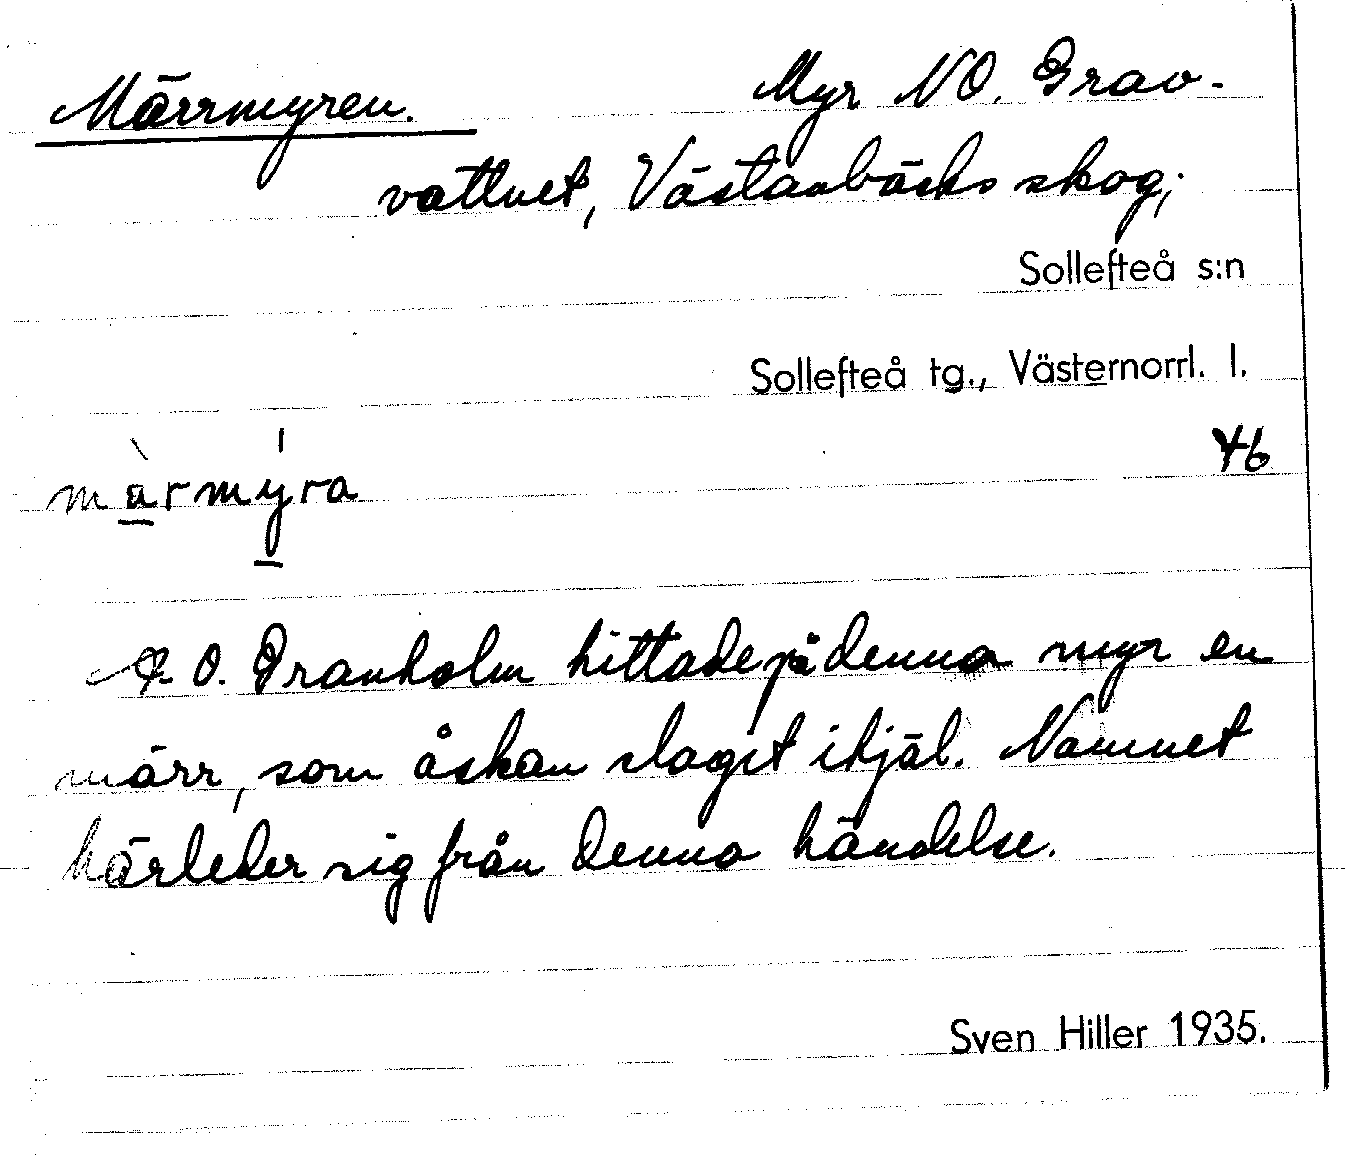 Märrmyren. Myr NO. Grav-
vattnet, Västanbäcks skog;
Sollefteå s:n
Sollefteå tg., Västernorrl. l.
màrmýra 46
A. O. Granholm hittade på denna myr en
märr, som åskan slagit ihjäl. Namnet
härleder sig från denna händelse.
Sven Hiller 1935.